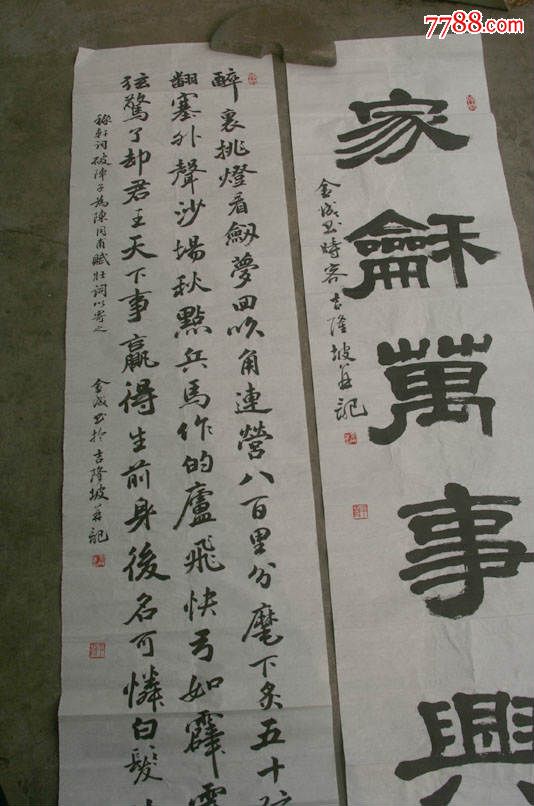 7788.com
家龢萬事興
金成书時客吉隆坡并記
醉裏挑燈看劔夢回吹角連營八百里分麾下炙五十
翻塞外聲沙場秋點兵馬作的廬飛快弓如霹
弦驚了却君王天下事贏得生前身後名可憐白髮
稼軒词破陣子為陳同甫賦壯詞以寄之 金成书於吉隆坡并記